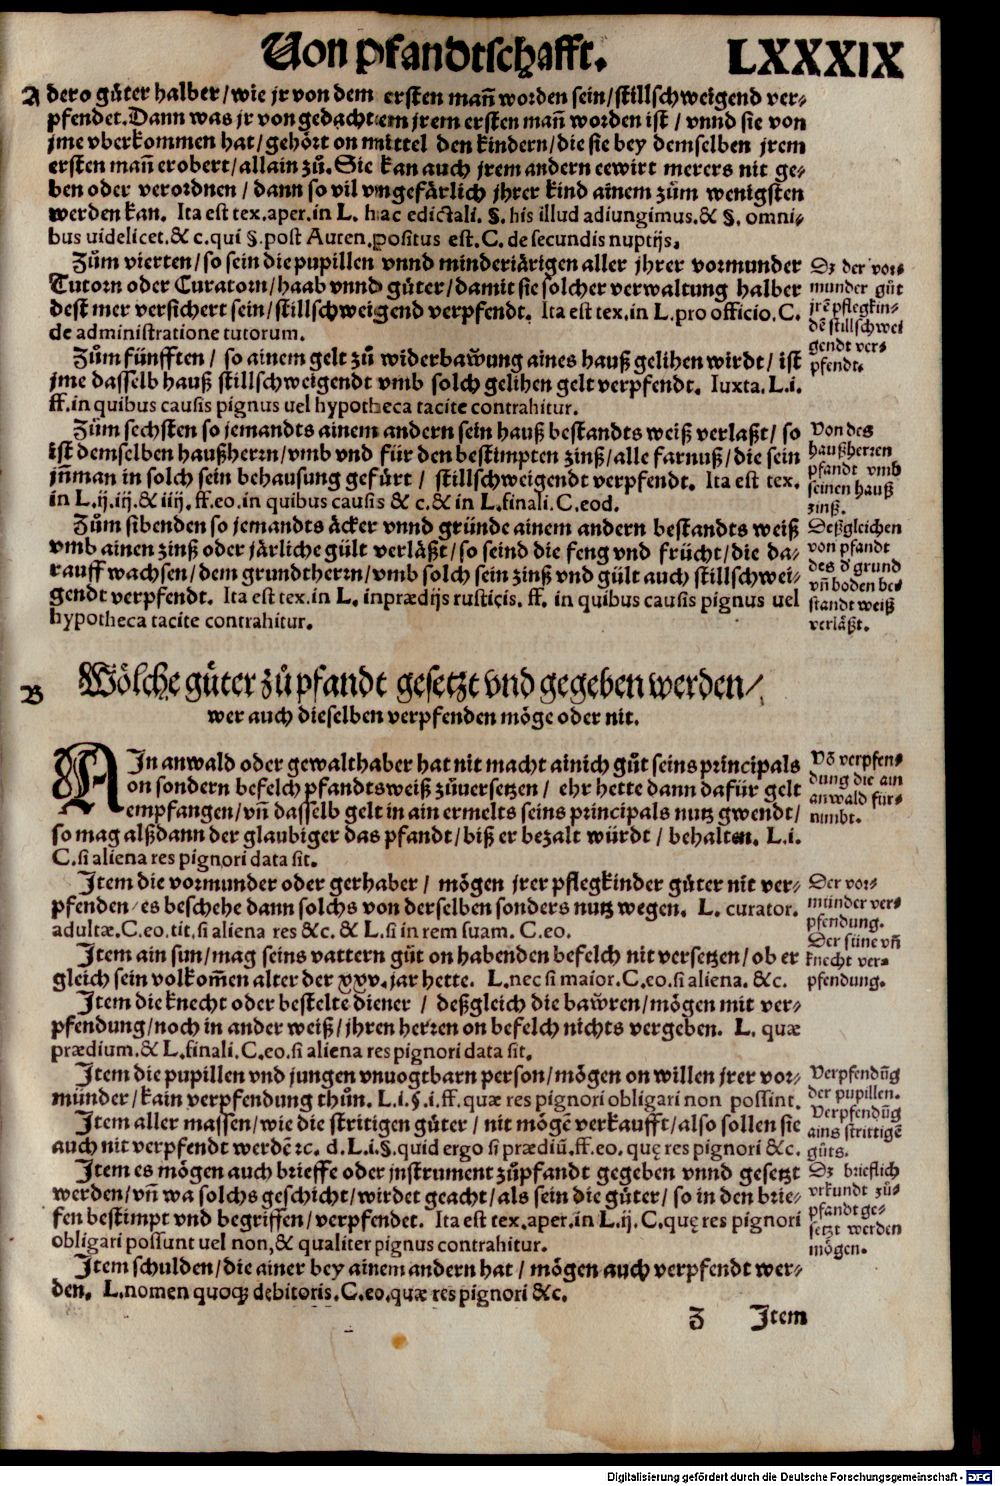 Von Pfandtschafft. LXXXIX
A dero güter halber/wie jr von dem ersten mañ worden sein/stillschweigend ver-
pfendet. Dann was jr von gedachtem jrem ersten mañ worden ist / vnnd sie von
jme vberkommen hat/gehört on mittel den kindern/die sie bey demselben jrem
ersten mañ erobert/allain zů. Sie kan auch jrem andern eewirt merers nit ge-
ben oder verordnen / dann so vil vngefärlich jhrer kind ainem zům wenigsten
werden kan. Ita est tex.aper.in L. hac edictali. §. his illud adiungimus.& §. omni-
bus uidelicet.& c.qui §.post Auten.positus est.C. de secundis nuptijs.
Zům vierten/so sein die pupillen vnnd minderjärigen aller jhrer vormunder
Tutorn oder Curatorn/haab vnnd güter/damit sie solcher verwaltung halber
dest mer versichert sein/stillschweigend verpfendt. Ita est tex.in L.pro officio.C.
de administratione tutorum.
Dz der vor-
munder güt
jrẽ pflegkin-
dẽ stillschwei
gendt ver-
pfendt.
Zům fünfften / so ainem gelt zů widerbawung aines hauß gelihen wirdt/ist
jme dasselb hauß stillschweigendt vmb solch gelihen gelt verpfendt. Iuxta.L.i.
ff.in quibus causis pignus uel hypotheca tacite contrahitur.
Zům sechsten so jemandts ainem andern sein hauß bestandts weiß verlaßt/so
ist demselben haußherrn/vmb vnd für den bestimpten zinß/alle farnuß/die sein
jñman in solch sein behausung gefürt / stillschweigendt verpfendt. Ita est tex.
in L.ij.iij.& iiij.ff.eo.in quibus causis & c.& in L.finali.C.eod.
Von des
haußherren
pfandt vmb
seinen hauß
zinß.
Zům sibenden so jemandts äcker vnnd gründe ainem andern bestandts weiß
vmb ainen zinß oder järliche gült verläßt/so seind die feng vnd frücht/die da-
rauff wachsen/dem grundtherrn/vmb solch sein zinß vnd gült auch stillschwei-
gendt verpfendt. Ita est tex.in L. in prædijs rusticis. ff. in quibus causis pignus uel
hypotheca tacite contrahitur.
Deßgleichen
von pfandt
des d'grund
vñ boden be-
standt weiß
verläßt.
B Wölche güter zů pfandt gesetzt vnd gegeben werden/
wer auch dieselben verpfenden möge oder nit.
AIn anwald oder gewalthaber hat nit macht ainich gůt seins principals
on sondern befelch pfandtsweiß zůuersetzen / ehr hette dann dafür gelt
empfangen/vñ dasselb gelt in ain ermelts seins principals nutz gwendt/
so mag alßdann der glaubiger das pfandt/biß er bezalt würdt / behalten. L.i.
C.si aliena res pignori data sit.
Võ verpfen-
dung die ain
anwald für-
nimbt.
Item die vormunder oder gerhaber / mögen jrer pflegkinder güter nit ver-
pfenden/es beschehe dann solchs von derselben sonders nutz wegen. L. curator.
adultæ.C.eo.tit.si aliena res &c. & L.si in rem suam. C.eo.
Der vor-
münder ver-
pfendung.
Item ain sun/mag seins vattern gůt on habenden befelch nit versetzen/ob er
gleich sein volkom̃en alter der xxv.jar hette. L.nec si maior.C.eo.si aliena. &c.
Der süne vñ
knecht ver-
pfendung.
Item die knecht oder bestelte diener / deßgleich die bawren/mögen mit ver-
pfendung/noch in ander weiß/jhren herren on befelch nichts vergeben. L. quæ
prædium.& L.finali.C.eo.si aliena res pignori data sit.
Item die pupillen vnd jungen vnuogtbarn person/mögen on willen jrer vor-
münder/kain verpfendung thůn. L.i.§.i.ff.quæ res pignori obligari non possint.
Verpfendũg
der pupillen.
Item aller massen/wie die stritigen güter / nit mögẽ verkaufft/also sollen sie
auch nit verpfendt werdẽ ꝛc. d.L.i.§.quid ergo si prædiũ.ff.eo. quę res pignori &c.
Verpfendũg
ains strittigẽ
gůts.
Item es mögen auch brieffe oder jnstrument zůpfandt gegeben vnnd gesetzt
werden/vñ wa solchs geschicht/wirdet geacht/als sein die güter/so in den brie-
fen bestimpt vnd begriffen/verpfendet. Ita est tex.aper.in L.ij.C.quę res pignori
obligari possunt uel non,& qualiter pignus contrahitur.
Dz brieflich
vrkundt zů-
pfandt ge-
setzt werden
mögen.
Item schulden/die ainer bey ainem andern hat / mögen auch verpfendt wer-
den. L.nomen quoqꝫ debitoris.C.eo.quæ res pignori &c.
Z Item
Digitalisierung gefördert durch die Deutsche Forschungsgemeinschaft - DFG